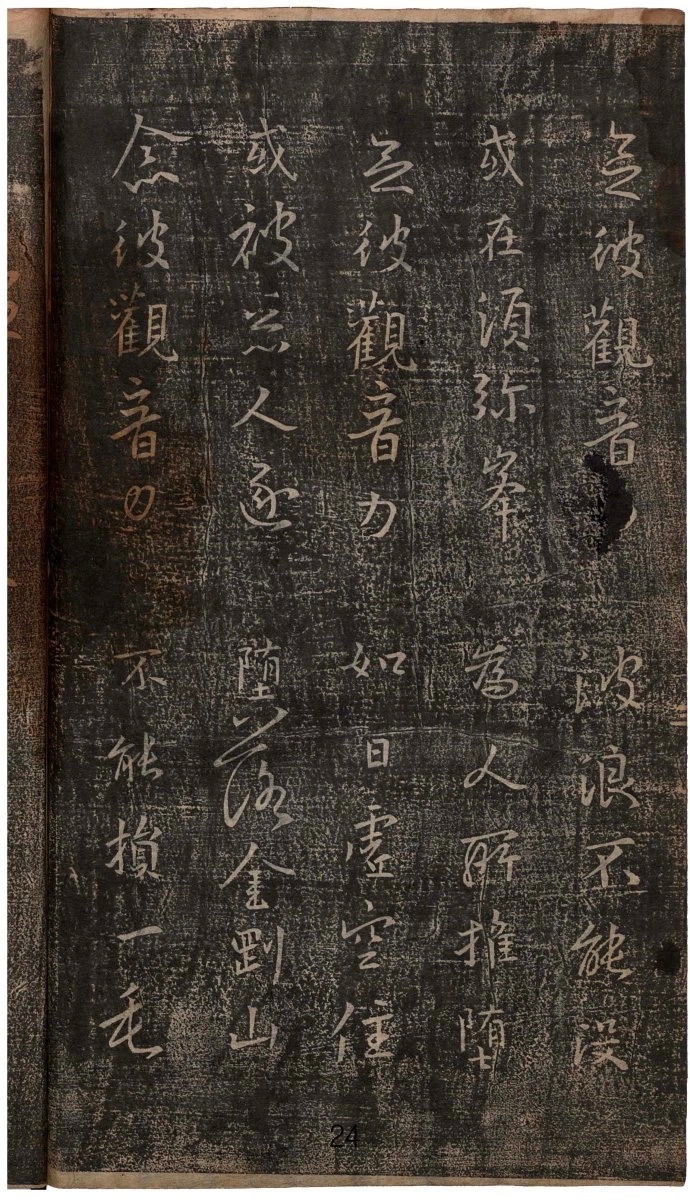 念彼觀音 波浪不能沒
或在須弥峯 為人所推堕
念彼觀音力 如日虛空住
或被惡人逐 堕落金剛山
念彼觀音力 不能損一毛
24